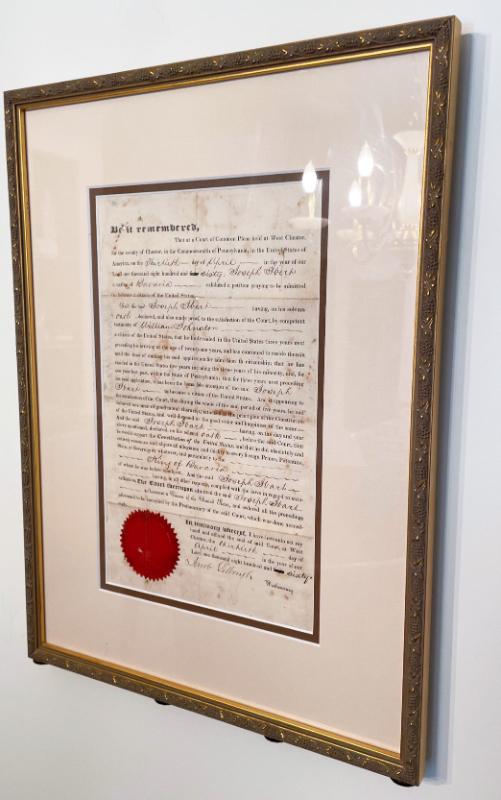 Be it remembered,
That at a Court of Common Pleas held at West Chester,
for the county of Chester, in the Commonwealth of Pennsylvania, in the United States of
America, on the Thirtieth day of April in the year of our
Lord one thousand eight hundred and sixty Joseph
a native of Bavaria exhibited a petition praying to be admitted
to become a citizen of the United States.
And the said Joseph having, on his solemn
oath declared, and also made proof, to the satisfaction of the Court, by competent
testimony of William Johnston
a citizen of the United States, that he had resided in the United States three years next
preceding his arriving at the age of twenty-one years, and has continued to reside therein
until the time of making his said application for admission to citizenship; that he has
resided in the United States five years including the three years of his minority, and, for
one year last past, within the State of Pennsylvania; that for three years next preceding
his said application, it has been the bona fide intention of the said Joseph
to become a citizen of the United States. And it appearing to
the satisfaction of the Court, that during the whole of the said period of five years, he had
behaved as a man of good moral character, attached to the principles of the Constitution
of the United States, and well disposed to the good order and happiness of the same
And the said Joseph having, on the day and year
above mentioned, declared, on his solemn oath before the said Court, that
he would support the Constitution of the United States, and that he did absolutely and
entirely renounce and abjure all allegiance and fidelity to every foreign Prince, Potentate,
State, or Sovereignty whatever, and particularly to the
King of Bavaria
of whom he was before a subject. And the said Joseph
having, in all other respects, complied with the laws in regard to natu-
ralization: The Court thereupon admitted the said Joseph
to become a Citizen of the United States, and ordered all the proceedings
aforesaid to be recorded by the Prothonotary of the said Court, which was done accord-
ingly.
In testimony whereof, I have hereunto set my
hand and affixed the seal of said Court, at West
Chester, the thirtieth day of
April in the year of our
Lord one thousand eight hundred and sixty
Prothonotary